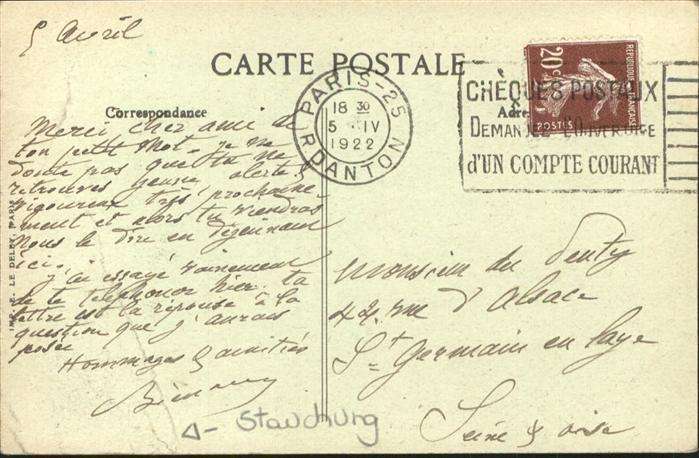 5 Avril
CARTE POSTALE
Correspondance
PARIS-25
18 30
5 IV
1922
R. DANTON
20c
REPUBLIQUE FRANÇAISE
POSTES
CHÈQUES POSTAUX
Adre
DEMANDEZ L'OUVERTURE
d'UN COMPTE COURANT
Merci cher ami de
ton petit mot. Je ne
doute pas que tu ne
retrouves alerte &
vigoureux très prochaine
ment et alors tu viendras
nous le dire en déjeunant
ici.
J'ai essayé vainement
de te telephoner hier. ta
lettre est la réponse à la
question que j'aurais
posée
Hommages & amitiés
Monsieur du
44, rue d'Alsace
St Germain en Laye
Seine & oise
IMP. E. LE DELEY, PARIS
Stauchung